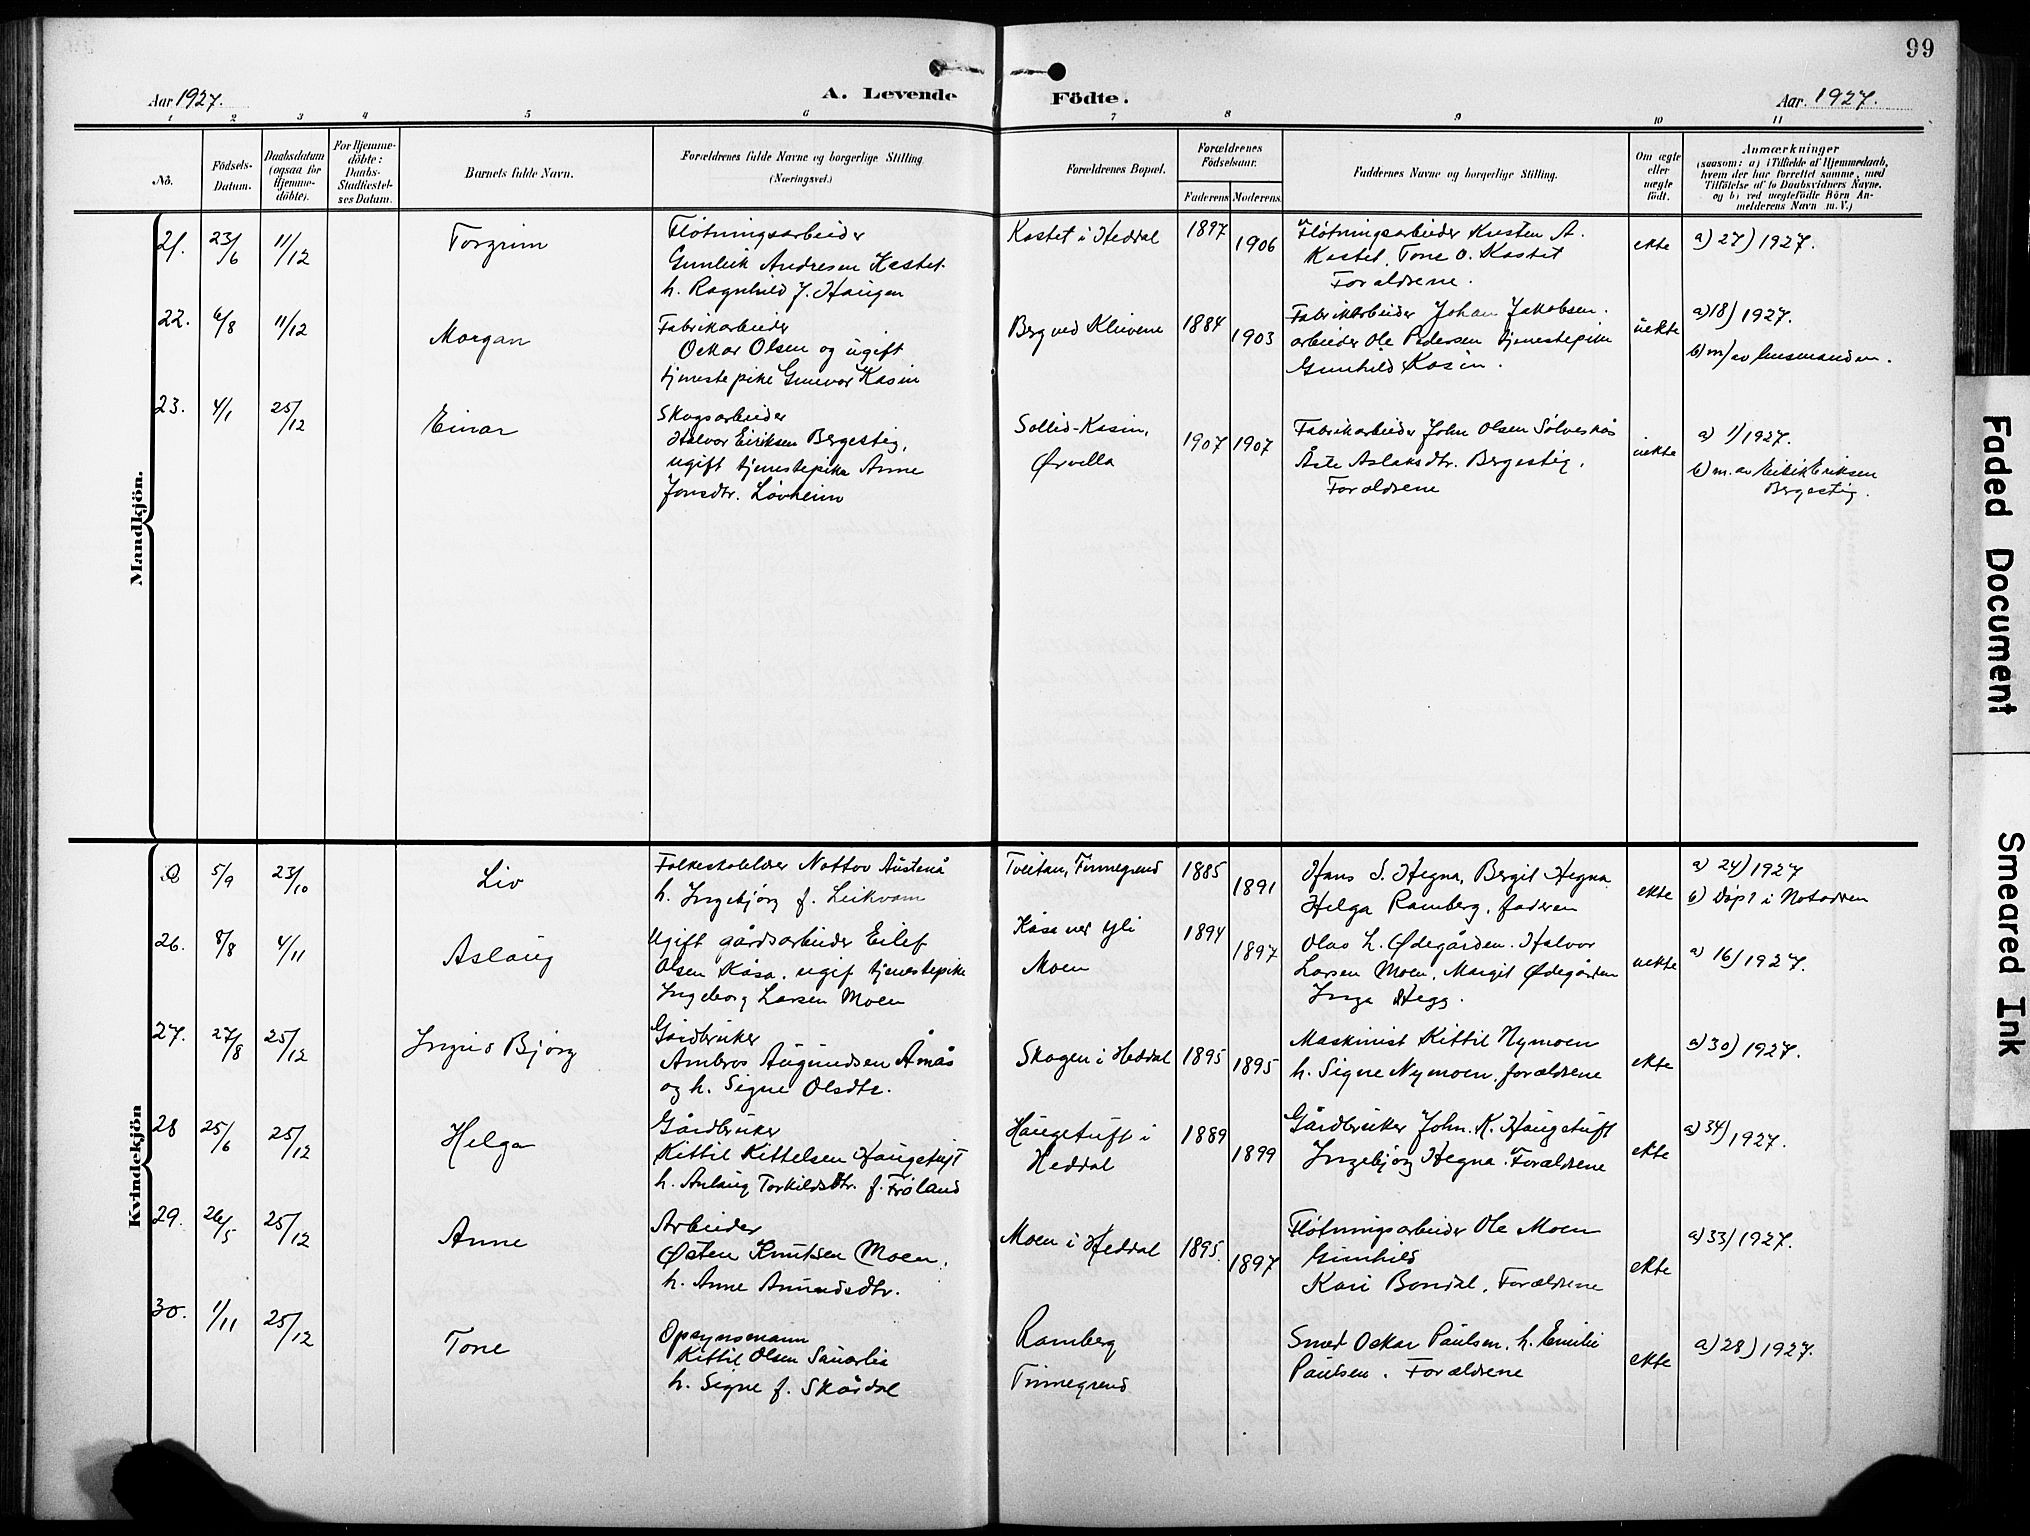 99
Aar 1927.
A. Levende Födte.
Aar. 1927.
1 2 3 4 5 6 7 8 9 10 11
No.
Födsels-
Datum.
Daabsdatum
(ogsaa for
Hjemme-
døbte).
For Hjemme-
døbte:
Daabs-
Stadfæstel-
ses Datum.
Barnets fulde Navn.
Forældrenes fulde Navne og borgerlige Stilling.
(Næringsvei.)
Forældrenes Bopæl.
Forældrenes
Födselsaar.
Faderens
Moderens
Faddernes Navne og borgerlige Stilling.
Om ægte
eller
uægte
født.
Anmærkninger
(saasom: a) i Tilfælde af Hjemmedaab,
hvem der har forrettet samme, med
Tilføielse af to Daabsvidners Navne,
og b) ved uægtefødte Börn An-
melderens Navn m. V.)
Mandkjön.
21. 23/6 11/12
Torgrim
Fløtningsarbeider
Gunleik Andresen Kastet
h. Ragnhild J. Haugen
Kastet i Heddal
1897
1906
Fløtningsarbeider Kristen A.
Kastet, Tone O. Kastet
Forældrene.
ekte
a) 27) 1927.
22. 6/8 11/12
Morgan
Fabrikarbeider
Oskar Olsen og ugift
tjenestepike Gunvor Kasin
Berg ved Kleivene
1884
1903
Fabrikarbeider Johan Jakobsen.
arbeider Ole Pedersen tjenestepike
Gunhild Kasin.
uekte
a) 18) 1927.
b) m/av husmanden.
23. 4/1 25/12
Einar
Skogsarbeider
Halvor Eiriksen Bergestig,
ugift tjenestepike Anne
Jonsdtr. Løvheim
Sollid-Kasin,
Ørvella
1907 1907
Fabrikarbeider John Olsen Sølvesås
Åste Aslaksdtr. Bergestig.
Forældrene
uekte
a) 1/1927.
b) m. av Eirik Eriksen
Bergestig.
Kvindekjön
5/9 23/10
Liv
Folkeskolelærer Nottov Austenå
h. Ingebjørg f. Leikvam
Tveitan, Tinnegrend
1885
1891
Hans S. Hegna, Bergit Hegna
Helga Ramberg, faderen
ekte
a) 24) 1927
b) Døpt i Notodden
26. 8/8 4/11
Aslaug
Ugift gårdsarbeider Eilef
Olsen Kåsa, ugif tjenestepike
Ingeborg Larsen Moen
Kåsa ver Yli
Moen
1894
1897
Olav L. Ødegården. Halvor
Larsen Moen, Margit Ødegården
Inga Hegg.
uekte
a) 16) 1927.
27. 27/8 25/12
Ingrid Bjørg
Gårdbruker
Ambros Augundsen Åmås
og h. Signe Olsdtr.
Skogen i Heddal
1895
1895
Maskinist Kittil Nymoen
h. Signe Nymoen, forældrene
ekte
a) 30) 1927.
28 25/6 25/12
Helga
Gårdbruker
Kittil Kittelsen Haugetuft
h. Aslaug Torkildsdtr. f. Frøland
Haugetuft i
Heddal
1889
1899
Gårdbruker John. K. Haugetuft
Ingebjørg Hegna. Forældrene
ekte
a) 34) 1927.
29. 26/5 25/12
Anne
Arbeider
Østen Knutsen Moen,
h. Anne Amundsdtr.
Moen i Heddal
1895
1897
Fløtningsarbeider Ole Moen
Gunhild
Kari Bondal, Forældrene
ekte
a) 33) 1927.
30. 1/11 25/12
Tone
Opsynsmann
Kittil Olsen Sauarlia
h. Signe f. Skårdal
Ramberg
Tinnegrend
Smed Oskar Paulsen, h. Emilie
Paulsen. Forældrene
ekte
a) 28) 1927.
Faded Document
Smeared Ink